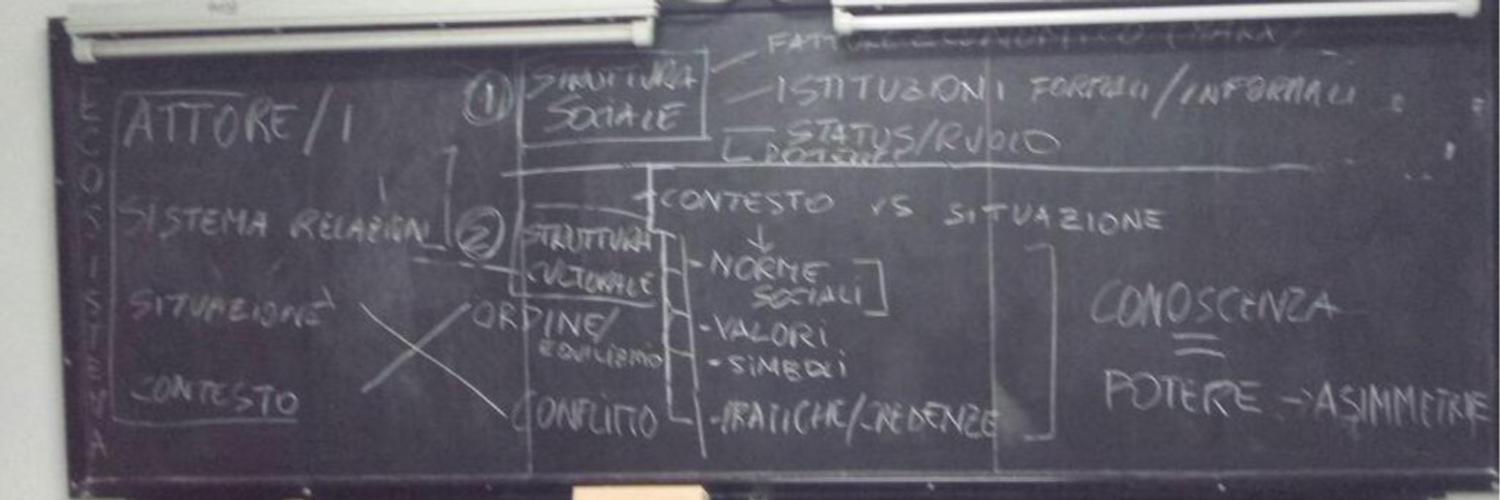 ECOSISTEMA
ATTORE/I
SISTEMA RELAZIONI
SITUAZIONE
CONTESTO
1 STRUTTURA
SOCIALE
FATTORE ECONOMICO (MARX)
ISTITUZIONI FORMALI/INFORMALI
STATUS/RUOLO
POTERE
CONTESTO VS SITUAZIONE
2 STRUTTURA
CULTURALE
ORDINE/
EQUILIBRIO
CONFLITTO
- NORME
SOCIALI
- VALORI
- SIMBOLI
- PRATICHE/CREDENZE
CONOSCENZA
=
POTERE → ASIMMETRIE